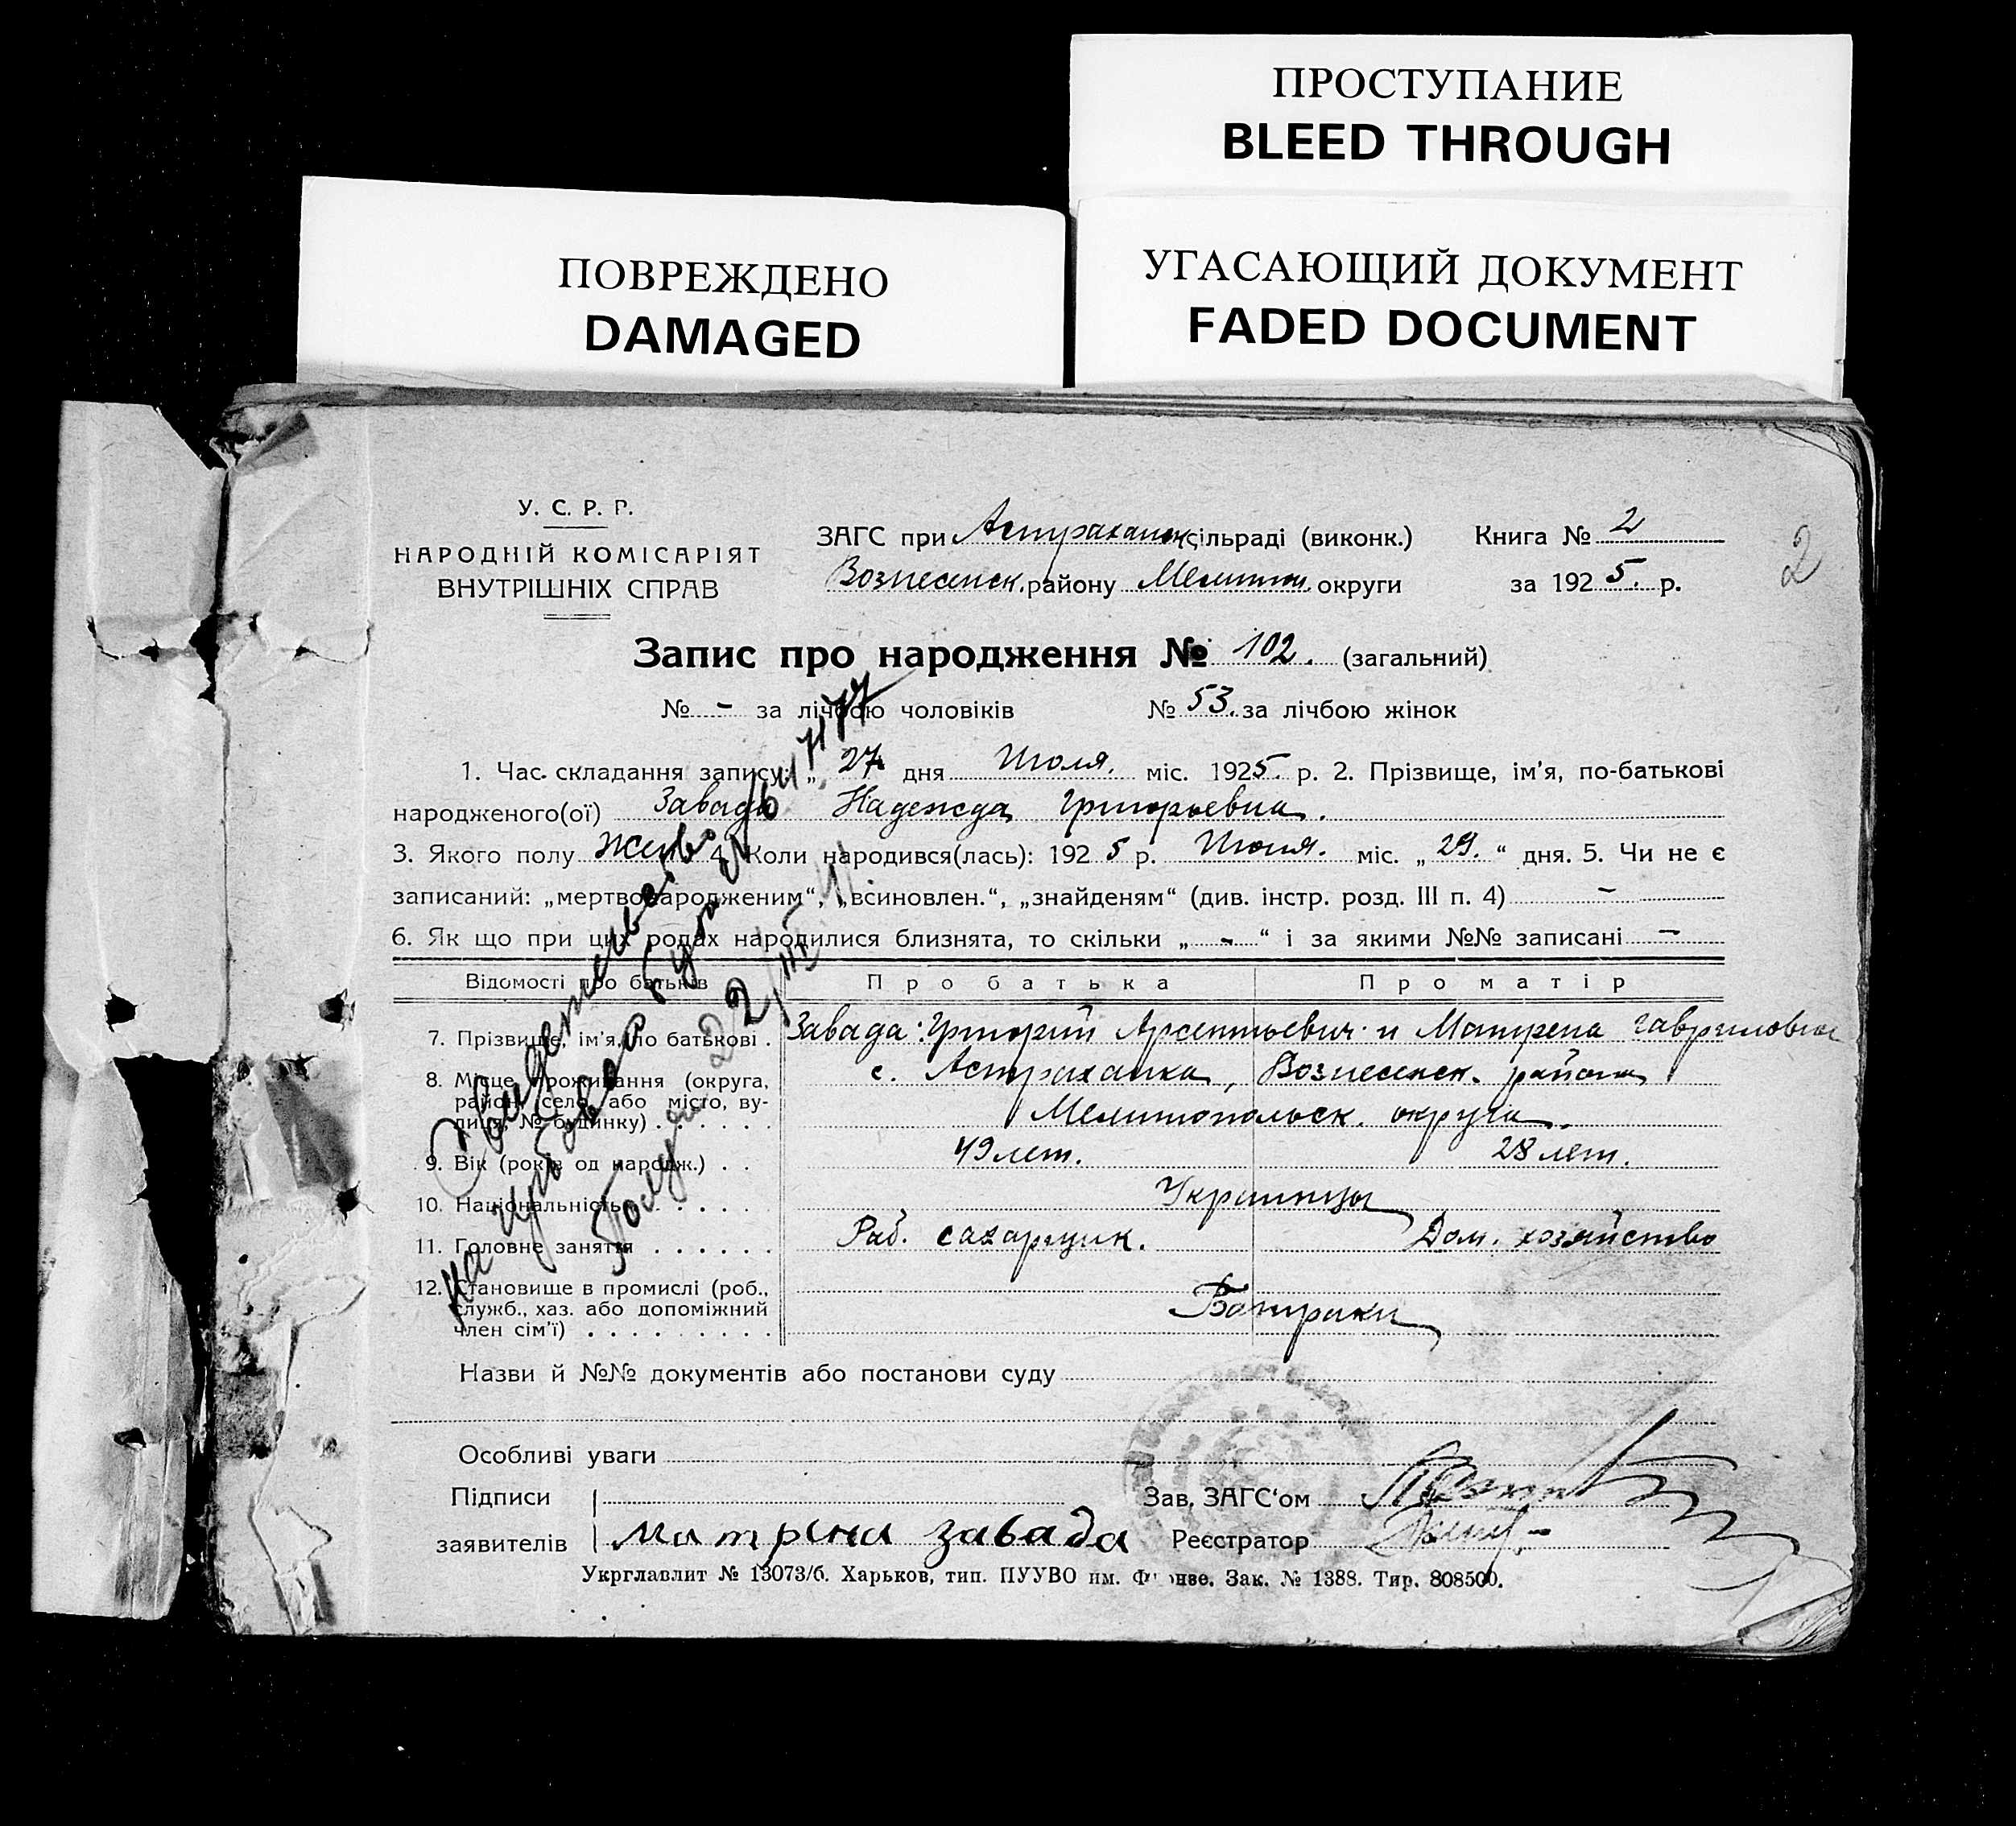 ПРОСТУПАНИЕ
BLEED THROUGH
ПОВРЕЖДЕНО
DAMAGED
УГАСАЮЩИЙ ДОКУМЕНТ
FADED DOCUMENT
У. С. Р. Р.
НАРОДНІЙ КОМІСАРІЯТ
ВНУТРІШНІХ СПРАВ
ЗАГС при Астраханск. сільраді (виконк.) Книга № 2
Вознесенск. району Мелитоп. округи за 1925. р.
2
Запис про народження № 102. (загальний)
№ - за лічбою чоловіків № 53. за лічбою жінок
1. Час складання запису: „ 27 дня Июля. міс. 1925. р. 2. Прізвище, ім'я, по-батькові
народженого(ої) Завада Надежда Григорьевна.
3. Якого полу Жен. 4. Коли народився(лась): 1925 р. Июня. міс. „ 29. “ дня. 5. Чи не є
записаний: „мертвонародженим“, „всиновлен.“, „знайденям“ (див. інстр. розд. III п. 4) -
6. Як що при цих родах народилися близнята, то скільки „ - “ і за якими №№ записані -
Відомості про батьків Про батька Про матір
7. Прізвище, ім'я, по батькові . Завада: Григорий Арсентьевич и Матрена Гавриловна
8. Місце проживання (округа, с. Астраханка, Вознесенск. района
район, село або місто, ву-
лиця, № будинку) . . . . . . Мелитопольск. округа.
9. Вік (років од народж.) . . 49 лет. 28 лет.
10. Національність . . . . . Украинцы
11. Головне заняття . . . . . . Раб. сахарщик. Дом. хозяйство
12. Становище в промислі (роб.,
служб., хаз. або допоміжний Батраки
член сім'ї) . . . . . . . . .
Назви й №№ документів або постанови суду
Особливі уваги
Підписи Зав. ЗАГС'ом
заявителів Матрена Завада Реєстратор
Укрглавлит № 13073/б. Харьков, тип. ПУУВО им. Фрунзе. Зак. № 1388. Тир. 808500.
Свидетельство
на
Получ 22/III 41.